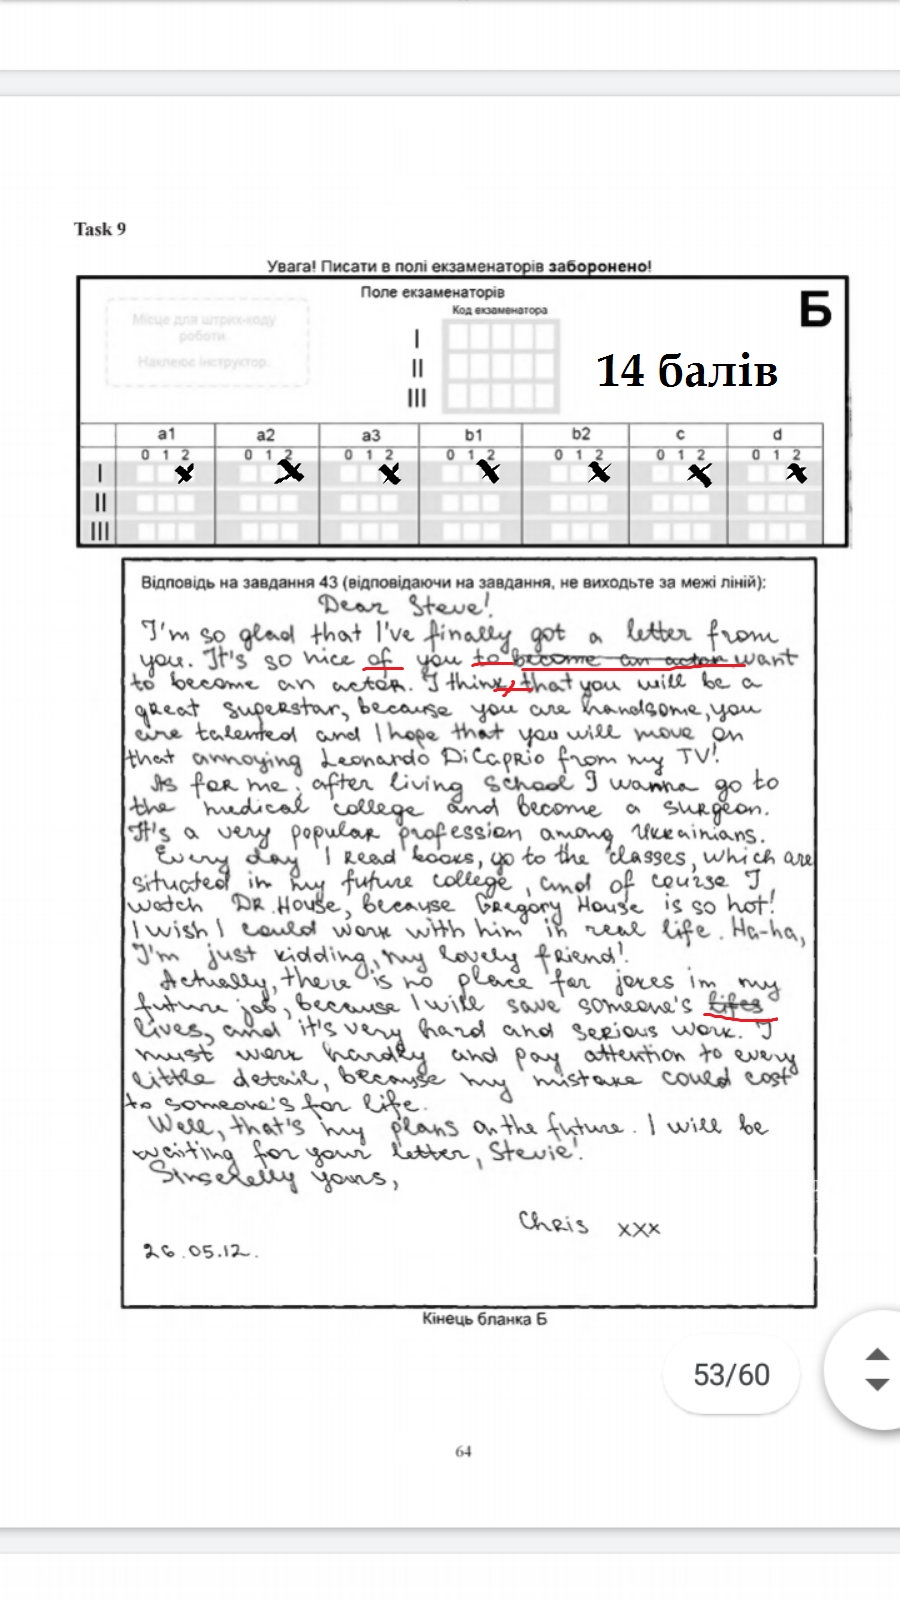 Task 9
Увага! Писати в полі екзаменаторів заборонено!
Поле екзаменаторів
Код екзаменатора
Б
Місце для штрих-коду
роботи.
Наклеює інструктор.
I
II
III
14 балів
a1 a2 a3 b1 b2 c d
0 1 2 0 1 2 0 1 2 0 1 2 0 1 2 0 1 2 0 1 2
I
II
III
Відповідь на завдання 43 (відповідаючи на завдання, не виходьте за межі ліній):
Dear Steve!
I'm so glad that I've finally got a letter from
you. It's so nice of you to become an actor want
to become an actor. I think, that you will be a
great superstar, because you are handsome, you
are talented and I hope that you will move on
that annoying Leonardo DiCaprio from my TV!
As for me, after living school I wanna go to
the medical college and become a surgeon.
It's a very popular profession among Ukrainians.
Every day I read books, go to the classes, which are
situated in my future college, and of course I
watch DR. House, because Gregory House is so hot!
I wish I could work with him in real life. Ha-ha,
I'm just kidding, my lovely friend!
Actually, there is no place for jokes in my
future job, because I will save someone's lifes
lives, and it's very hard and serious work. I
must work hardly and pay attention to every
little detail, because my mistake could cost
to someone's for life.
Well, that's my plans on the future. I will be
waiting for your letter, Stevie!
Sincerelly yours,
Chris xxx
26.05.12.
Кінець бланка Б
53/60
64